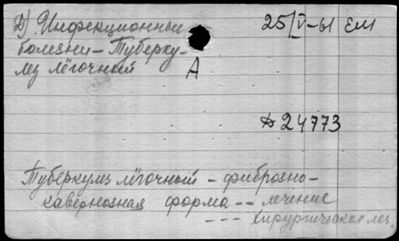 Д). Инфекционные
болезни – Туберку-
лез лёгочный
А
25/V-61 ЕМ
24773
Туберкулез лёгочный – фиброзно-
кавернозная форма -- лечение
--- хирургическая